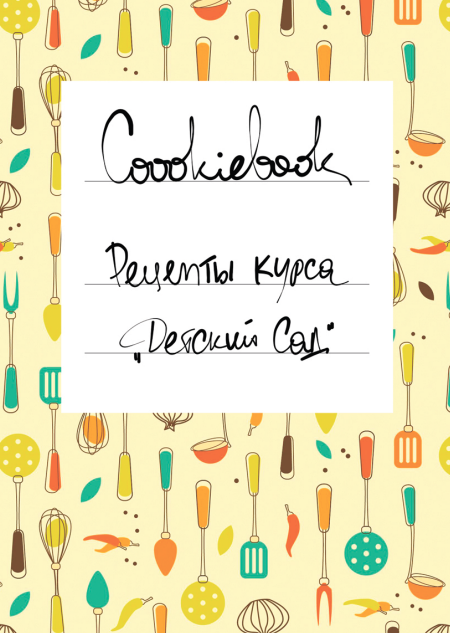 Coookiebook
Рецепты курса
„Детский Сад"